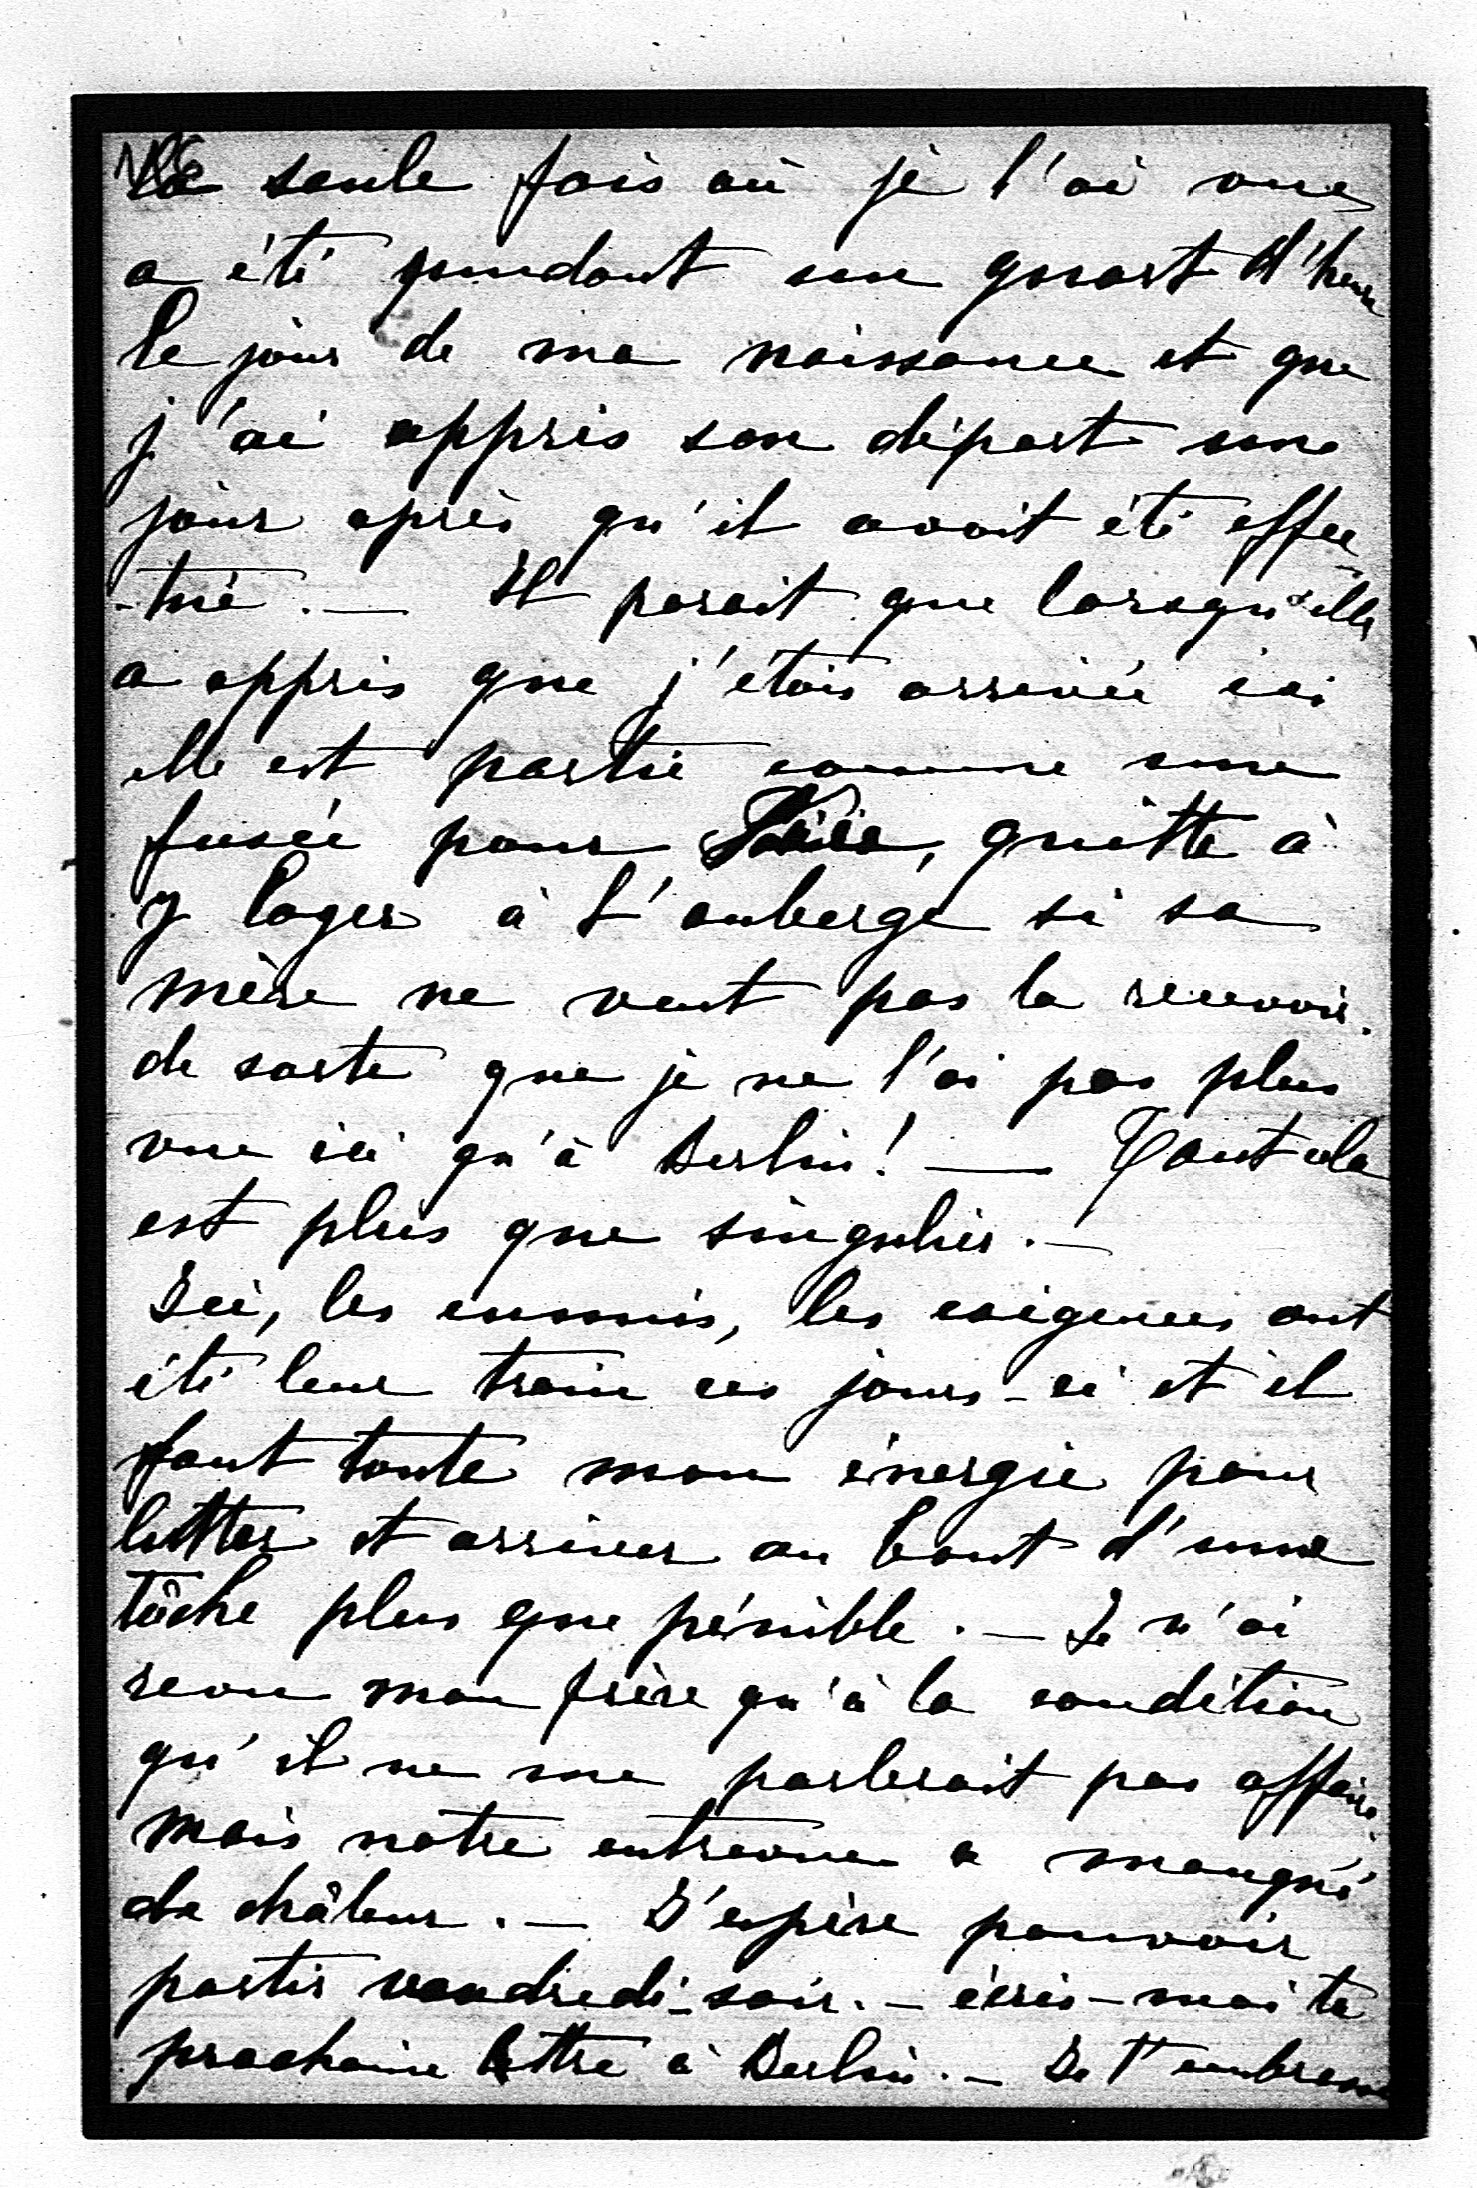 La seule fois où je l'ai vue
a été pendant un quart d'heure
le jour de ma naissance et que
j'ai appris son départ une
jour après qu'il avait été effec
-tué. — Il parait que lorsqu'elle
a appris que j'étais arrivée ici
elle est partie comme une
fusée pour, quitte à
y loger à l'auberge si sa
mère ne veut pas la recevoir.
de sorte que je ne l'ai pas plus
vue ici qu'à Berlin! — Tout cela
est plus que singulier. —
Ici, les ennuis, les exigences ont
été leur train ces jours-ci et il
faut toute mon énergie pour
lutter et arriver au bout d'une
tâche plus que pénible. — Je n'ai
revu mon frère qu'à la condition
qu'il ne me parlerait pas affaires.
Mais notre entrevue a manqué
de châleur. — J'espère pouvoir
partir vendredi-soir. — écris-moi ta
prochaine lettre à Berlin. — Je t'embrasse